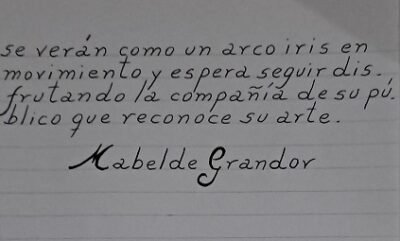 se verán como un arco iris en
movimiento, y espera seguir dis.
frutando la compañía de su pú.
blico que reconoce su arte.
Mabel de Grandor